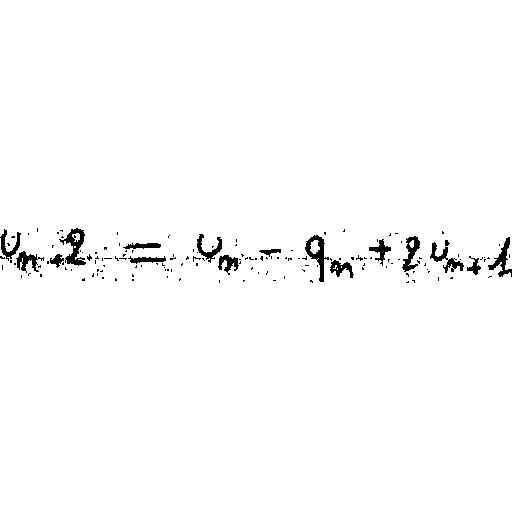 u_{n+2} = u_n - q_n + 2u_{n+1}